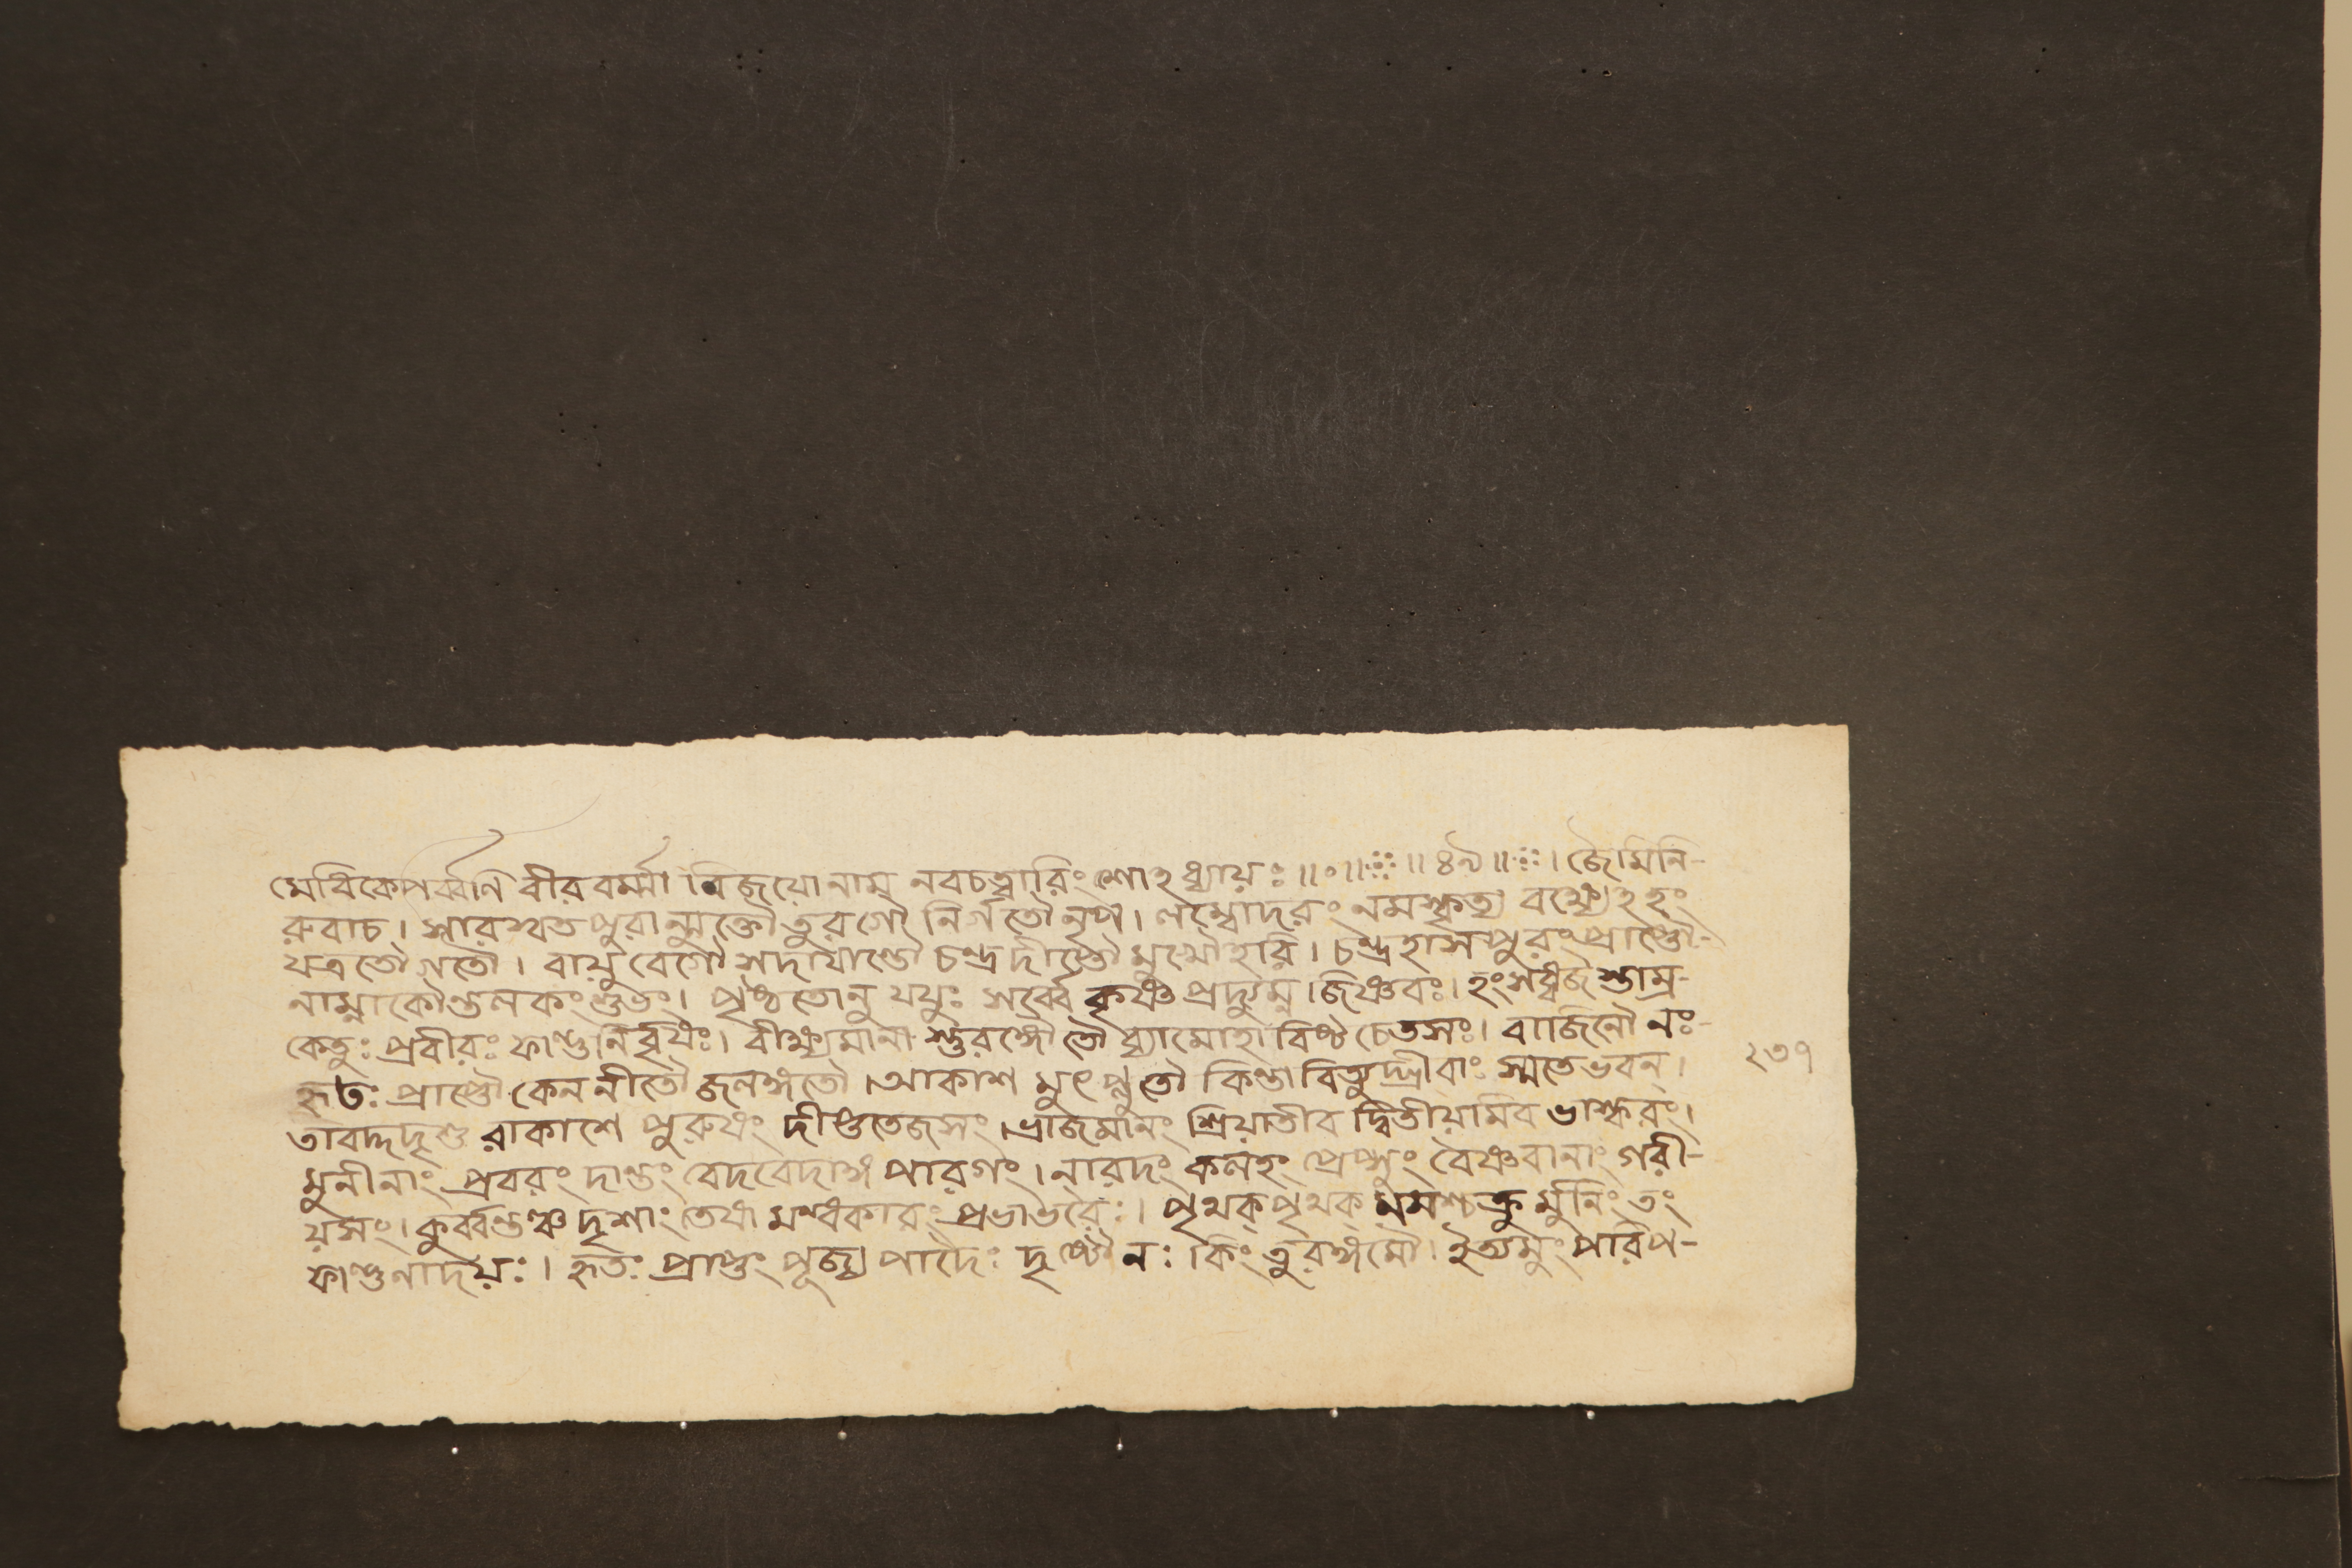 মেধিকেপর্ব্বণি বীরবর্ম্মা বিজয়ো নাম নবচত্বারিংশোঽধ্যায়ঃ ॥০॥ ॥৪৯॥ । জৈমিনি-
রুবাচ । সারস্বতপুরান্মুক্তৌ তুরগৌ নির্গতৌ নৃপ । লম্বোদরং নমস্কৃত্য বক্ষ্যেঽহং
যত্র তৌ গতৌ । বায়ুবেগৌ সদা যান্তৌ চন্দ্রদীপ্তৌ মুখৌ হরি । চন্দ্রহাসপুরং প্রাপ্তৌ-
নাম্না কৌন্তলকং শুভং । পৃষ্ঠতোনু যযুঃ সর্ব্বে কৃষ্ণ প্রদ্যুম্ন জিষ্ণবঃ । হংসধ্বজস্তাম্র-
কেতুঃ প্রবীরঃ ফাল্গুনির্বৃষঃ । বীক্ষ্যমানা স্তুরঙ্গৌ তৌ ধ্যামোহা বিষ্ট চেতসঃ । বাজিনৌ নঃ-
হৃতঃ প্রাপ্তৌ কেন নীতৌ জলঙ্গতৌ । আকাশ মুৎপ্লুতৌ কিম্বা বিত্যুদ্গ্রীবাঃ স্মতেভবন্ ।
তাবদ্দদৃশু রাকাশে পুরুষং দীপ্ততেজসং । ভ্রাজমানং শ্রিয়াতীব দ্বিতীয়মিব ভাস্করং ।
মুনীনাং প্রবরং দান্তং বেদবেদাঙ্গ পারগং । নারদং কলহং প্রেপ্সুং বৈষ্ণবানাং গরী-
য়সং । কুর্ব্বন্তঞ্চ দৃশাং তেষা মন্ধকারং প্রভাভরৈঃ । পৃথক্ পৃথক্ নমশ্চক্রু র্মুনিং তং
ফাল্গুনাদয়ঃ । হৃতঃ প্রাপ্তং পূজ্য পাদৈঃ দৃষ্টৌ নঃ কিং তুরঙ্গমৌ । ইত্যমুং পরিপ-
২৩৭